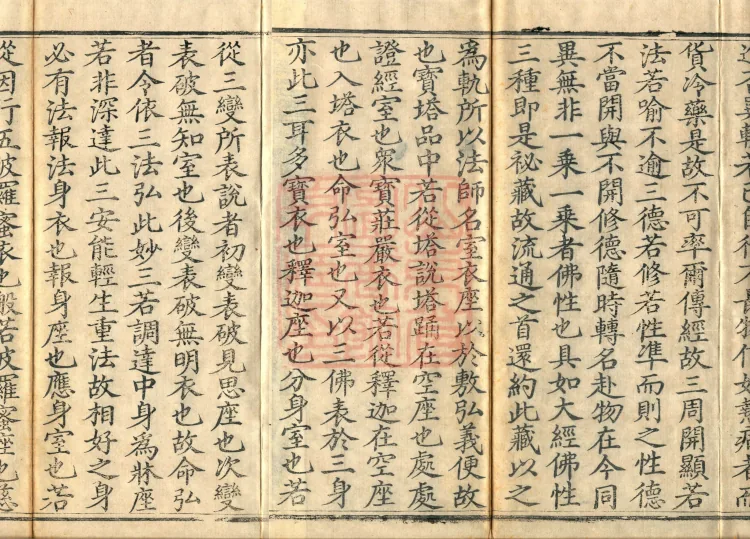 貨冷藥是故不可率爾傳經故三周開顯若
法若喻不逾三德若修若性準而則之性德
不當開與不開修德隨時轉名赴物在今同
異無非一乗一乗者佛性也具如大經佛性
三種即是祕藏故流通之首還約此藏以之
爲軌所以法師名室衣座以於敷弘義便故
也寶塔品中若從塔說塔踊在空座也處處
證經室也衆寶莊嚴衣也若從釋迦在空座
也入塔衣也命弘室也又以三佛表於三身
亦此三耳多寶衣也釋迦座也分身室也若
從三變所表說者初變表破見思座也次變
表破無知室也後變表破無明衣也故命弘
者令依三法弘此妙三若調達中身爲牀座
若非深達此三安能輕生重法故相好之身
必有法報法身衣也報身座也應身室也若
從因行五波羅蜜衣也般若波羅蜜座也慈